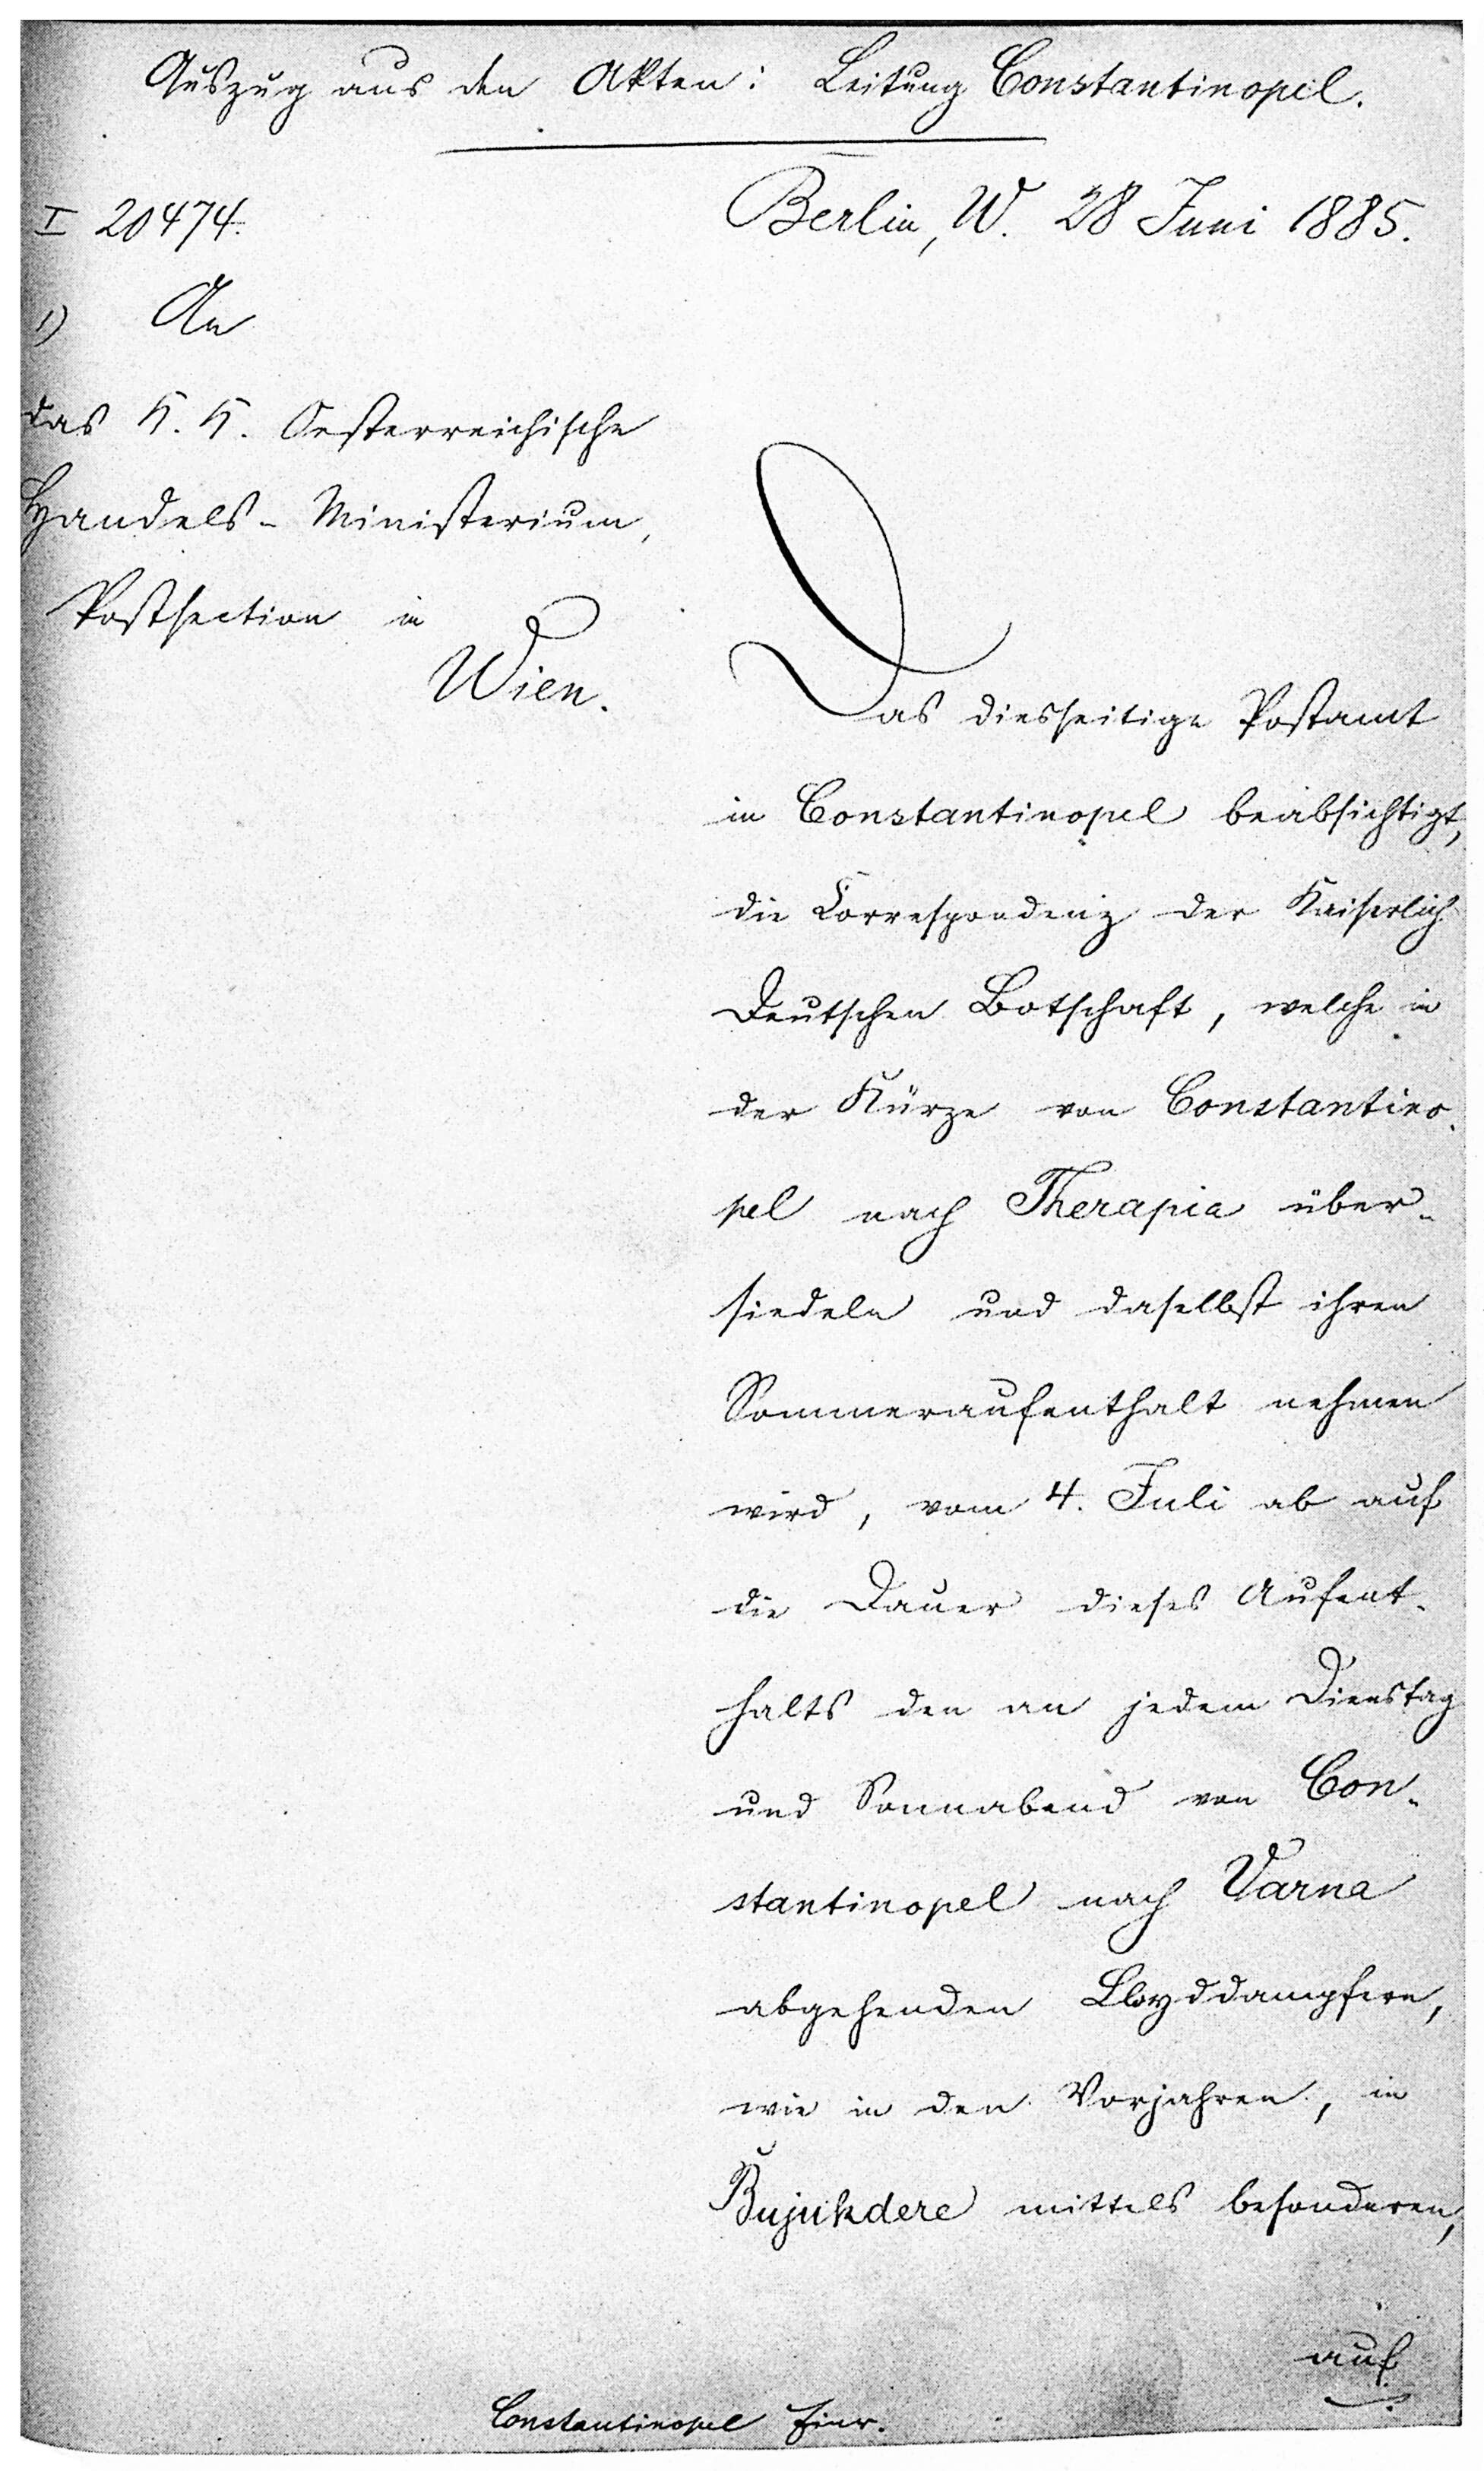 Auszug aus den Akten: Leitung Constantinopel.
I 20474.
Berlin, W. 28 Juni 1885.
1) An
das K. K. Oesterreichische
Handels-Ministerium,
Postsection in
Wien.
Das diesseitige Postamt
in Constantinopel beabsichtigt,
die Correspondenz der Kaiserlich
Deutschen Botschaft, welche in
der Kürze von Constantino-
pel nach Therapia über-
siedeln und daselbst ihren
Sommeraufenthalt nehmen
wird, vom 4. Juli ab auf
die Dauer dieses Aufent-
halts den an jedem Dienstag
und Sonnabend von Con-
stantinopel nach Varna
abgehenden Lloyddampfern,
wie in den Vorjahren, in
Bujukdere mittels besonderen,
auf
Constantinopel